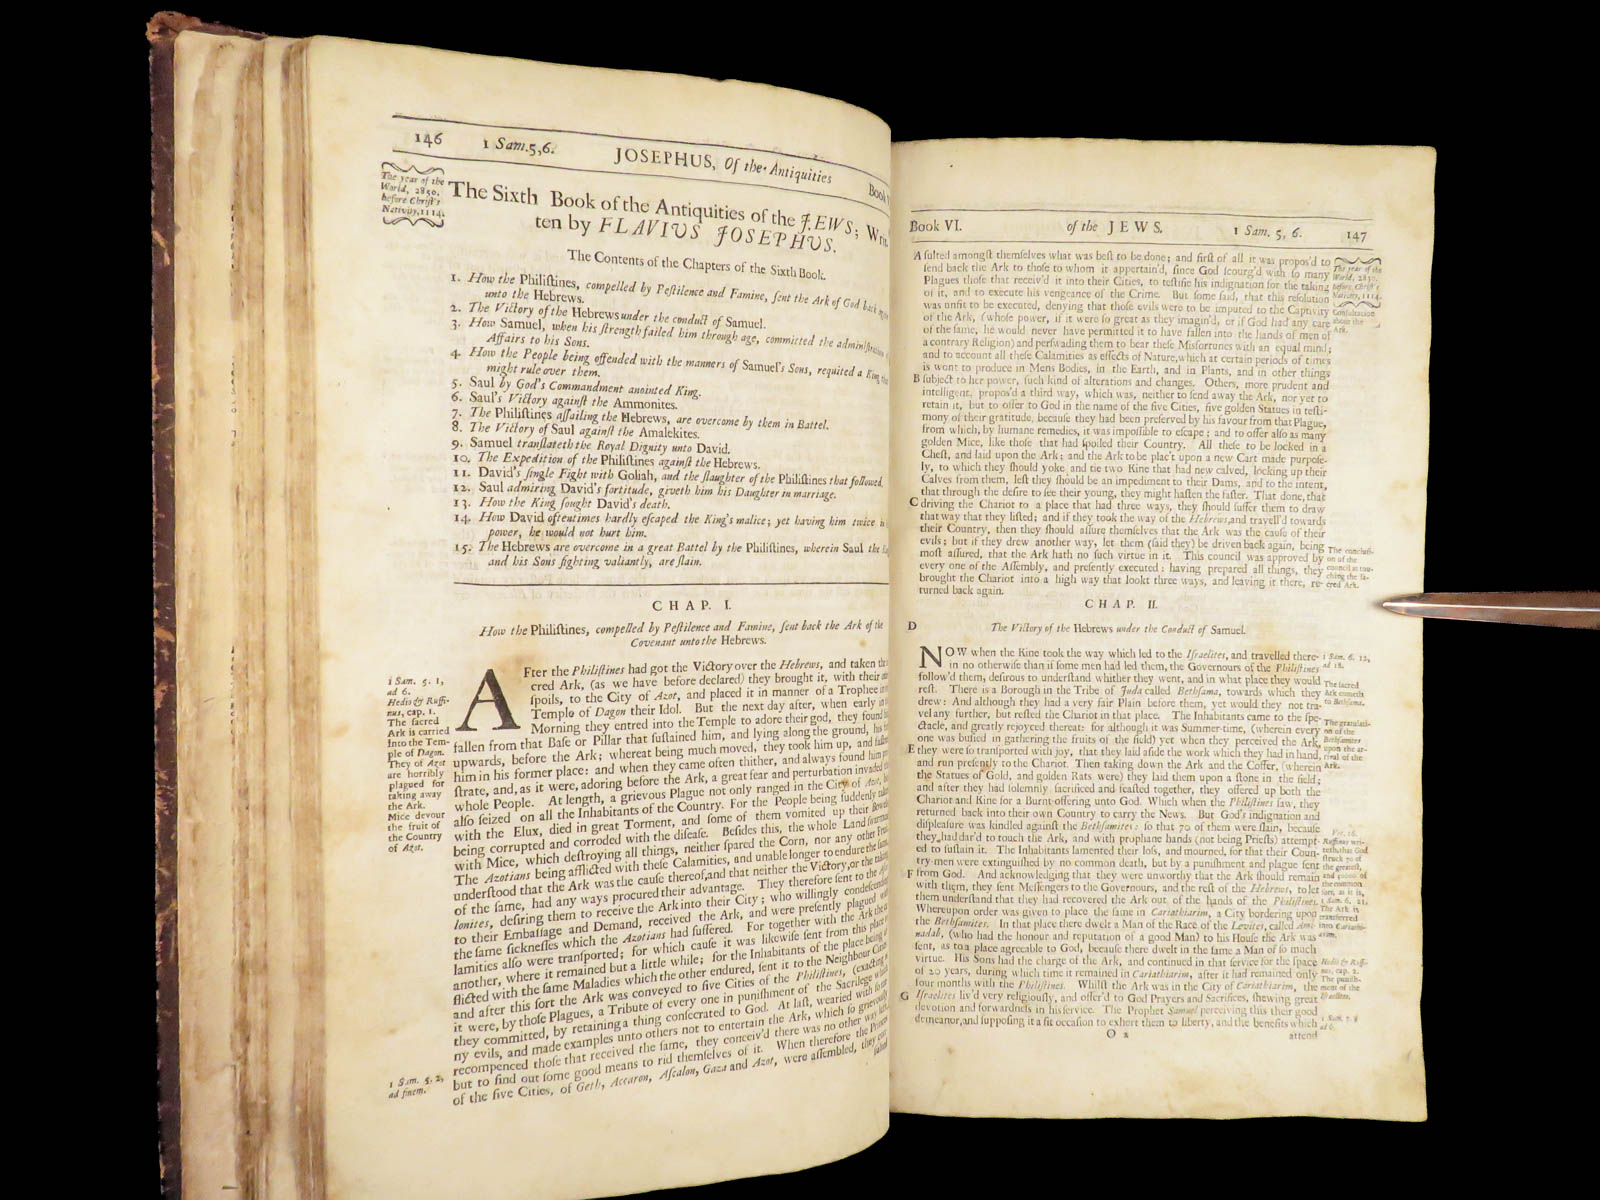 146 1 Sam. 5, 6. JOSEPHUS, Of the Antiquities Book
The year of the
World, 2850.
before Christ's
Nativity, 1114.
The Sixth Book of the Antiquities of the JEWS; Writ-
ten by FLAVIUS JOSEPHUS.
The Contents of the Chapters of the Sixth Book.
1. How the Philiſtines, compelled by Peſtilence and Famine, ſent the Ark of God back
unto the Hebrews.
2. The Victory of the Hebrews under the conduct of Samuel.
3. How Samuel, when his ſtrength failed him through age, committed the adminiſtration
Affairs to his Sons.
4. How the People being offended with the manners of Samuel's Sons, required a King
might rule over them.
5. Saul by God's Commandment anointed King.
6. Saul's Victory againſt the Ammonites.
7. The Philiſtines aſſailing the Hebrews, are overcome by them in Battel.
8. The Victory of Saul againſt the Amalekites.
9. Samuel tranſlateth the Royal Dignity unto David.
10. The Expedition of the Philiſtines againſt the Hebrews.
11. David's ſingle Fight with Goliah, and the ſlaughter of the Philiſtines that followed.
12. Saul admiring David's fortitude, giveth him his Daughter in marriage.
13. How the King ſought David's death.
14. How David oftentimes hardly eſcaped the King's malice; yet having him twice in
power, he would not hurt him.
15. The Hebrews are overcome in a great Battel by the Philiſtines, wherein Saul the
and his Sons fighting valiantly, are ſlain.
CHAP. I.
How the Philiſtines, compelled by Peſtilence and Famine, ſent back the Ark of the
Covenant unto the Hebrews.
1 Sam. 5. 1,
ad 6.
Hedio & Ruffi-
nus, cap. 1.
The ſacred
Ark is carried
into the Tem-
ple of Dagon.
They of Azot
are horribly
plagued for
taking away
the Ark.
Mice devour
the fruit of
the Country
of Azot.
AFter the Philiſtines had got the Victory over the Hebrews, and taken the
cred Ark, (as we have before declared) they brought it, with their
ſpoils, to the City of Azot, and placed it in manner of a Trophee in
Temple of Dagon their Idol. But the next day after, when early in
Morning they entred into the Temple to adore their god, they found
fallen from that Baſe or Pillar that ſuſtained him, and lying along the ground, his
upwards, before the Ark; whereat being much moved, they took him up, and
him in his former place: and when they came often thither, and always found him
ſtrate, and, as it were, adoring before the Ark, a great fear and perturbation invaded
whole People. At length, a grievous Plague not only ranged in the City of Azot,
alſo ſeized on all the Inhabitants of the Country. For the People being ſuddenly
with the Flux, died in great Torment, and ſome of them vomited up their Bowels
being corrupted and corroded with the diſeaſe. Beſides this, the whole Land
with Mice, which deſtroying all things, neither ſpared the Corn, nor any other
The Azotians being afflicted with theſe Calamities, and unable longer to endure the
underſtood that the Ark was the cauſe thereof, and that neither the Victory, or the taking
of the ſame, had any ways procured their advantage. They therefore ſent to the
lonites, deſiring them to receive the Ark into their City; who willingly condeſcending
to their Embaſſage and Demand, received the Ark, and were preſently plagued
the ſame ſickneſſes which the Azotians had ſuffered. For together with the Ark
lamities alſo were tranſported; for which cauſe it was likewiſe ſent from this place
another, where it remained but a little while; for the Inhabitants of the place being
flicted with the ſame Maladies which the other endured, ſent it to the Neighbour
and after this ſort the Ark was conveyed to five Cities of the Philiſtines, (exacting
it were, by thoſe Plagues, a Tribute of every one in puniſhment of the Sacrilege
they committed, by retaining a thing conſecrated to God. At laſt, wearied with
ny evils, and made examples unto others not to entertain the Ark, which ſo grievouſly
recompenced thoſe that received the ſame, they conceiv'd there was no other way
but to find out ſome good means to rid themſelves of it. When therefore the Princes
of the five Cities, of Geth, Accaron, Aſcalon, Gaza and Azot, were aſſembled, they
1 Sam. 5. 2,
ad finem.
Book VI. of the JEWS. 1 Sam. 5, 6. 147
A ſulted amongſt themſelves what was beſt to be done; and firſt of all it was propos'd to
ſend back the Ark to thoſe to whom it appertain'd, ſince God ſcourg'd with ſo many
Plagues thoſe that receiv'd it into their Cities, to teſtifie his indignation for the taking
of it, and to execute his vengeance of the Crime. But ſome ſaid, that this reſolution
was unfit to be executed, denying that thoſe evils were to be imputed to the Captivity
of the Ark, (whoſe power, if it were ſo great as they imagin'd, or if God had any care
of the ſame, he would never have permitted it to have fallen into the hands of men of
a contrary Religion) and perſwading them to bear theſe Misfortunes with an equal mind;
and to account all theſe Calamities as effects of Nature, which at certain periods of times
is wont to produce in Mens Bodies, in the Earth, and in Plants, and in other things
B ſubject to her power, ſuch kind of alterations and changes. Others, more prudent and
intelligent, propos'd a third way, which was, neither to ſend away the Ark, nor yet to
retain it, but to offer to God in the name of the five Cities, five golden Statues in teſti-
mony of their gratitude, becauſe they had been preſerved by his favour from that Plague,
from which, by humane remedies, it was impoſſible to eſcape; and to offer alſo as many
golden Mice, like thoſe that had ſpoiled their Country. All theſe to be locked in a
Cheſt, and laid upon the Ark; and the Ark to be plac't upon a new Cart made purpoſe-
ly, to which they ſhould yoke and tie two Kine that had new calved, locking up their
Calves from them, leſt they ſhould be an impediment to their Dams, and to the intent,
that through the deſire to ſee their young, they might haſten the faſter. That done, that
C driving the Chariot to a place that had three ways, they ſhould ſuffer them to draw
that way that they liſted; and if they took the way of the Hebrews, and travell'd towards
their Country, then they ſhould aſſure themſelves that the Ark was the cauſe of their
evils; but if they drew another way, let them (ſaid they) be driven back again, being
moſt aſſured, that the Ark hath no ſuch virtue in it. This council was approved by
every one of the Aſſembly, and preſently executed: having prepared all things, they
brought the Chariot into a high way that lookt three ways, and leaving it there, re-
turned back again.
The year of the
World, 2850.
before Christ's
Nativity, 1114.
Conſultation
about the
Ark.
The concluſi-
on of the
council as tou-
ching the ſa-
cred Ark.
CHAP. II.
D The Victory of the Hebrews under the Conduct of Samuel.
NOW when the Kine took the way which led to the Iſraelites, and travelled there-
in no otherwiſe than if ſome men had led them, the Governours of the Philiſtines
follow'd them, deſirous to underſtand whither they went, and in what place they would
reſt. There is a Borough in the Tribe of Juda called Bethſama, towards which they
drew: And although they had a very fair Plain before them, yet would they not tra-
vel any further, but reſted the Chariot in that place. The Inhabitants came to the ſpe-
ctacle, and greatly rejoyced thereat: for although it was Summer-time, (wherein every
one was buſied in gathering the fruits of the field) yet when they perceived the Ark,
E they were ſo tranſported with joy, that they laid aſide the work which they had in hand,
and run preſently to the Chariot. Then taking down the Ark and the Coffer, (wherein
the Statues of Gold, and golden Rats were) they laid them upon a ſtone in the field;
and after they had ſolemnly ſacrificed and feaſted together, they offered up both the
Chariot and Kine for a Burnt-offering unto God. Which when the Philiſtines ſaw, they
returned back into their own Country to carry the News. But God's indignation and
diſpleaſure was kindled againſt the Bethſamites: ſo that 70 of them were ſlain, becauſe
they had dar'd to touch the Ark, and with prophane hands (not being Prieſts) attempt-
ed to ſuſtain it. The Inhabitants lamented their loſs, and mourned, for that their Coun-
try-men were extinguiſhed by no common death, but by a puniſhment and plague ſent
F from God. And acknowledging that they were unworthy that the Ark ſhould remain
with them, they ſent Meſſengers to the Governours, and the reſt of the Hebrews, to let
them underſtand that they had recovered the Ark out of the hands of the Philiſtines.
Whereupon order was given to place the ſame in Cariathiarim, a City bordering upon
the Bethſamites. In that place there dwelt a Man of the Race of the Levites, called Ami-
nadab, (who had the honour and reputation of a good Man) to his Houſe the Ark was
ſent, as to a place agreeable to God, becauſe there dwelt in the ſame a Man of ſo much
virtue. His Sons had the charge of the Ark, and continued in that ſervice for the ſpace
of 20 years, during which time it remained in Cariathiarim, after it had remained only
four months with the Philiſtines. Whilſt the Ark was in the City of Cariathiarim, the
G Iſraelites liv'd very religiouſly, and offer'd to God Prayers and Sacrifices, ſhewing great
devotion and forwardneſs in his ſervice. The Prophet Samuel perceiving this their good
demeanor, and ſuppoſing it a fit occaſion to exhort them to liberty, and the benefits which
O 2 attend
1 Sam. 6. 12,
ad 18.
The ſacred
Ark cometh
to Bethſama.
The gratulati-
on of the
Bethſamites
upon the ar-
rival of the
Ark.
Ruffinus wri-
teth, that God
ſtruck 70 of
the greateſt,
and 50000 of
the common
ſort, as it is,
1 Sam. 6. 21.
The Ark is
tranſferred
into Cariathi-
arim.
Hedio & Ruffi-
nus, cap. 2.
The puniſh-
ment of the
Iſraelites.
1 Sam. 7. 8
ad 6.